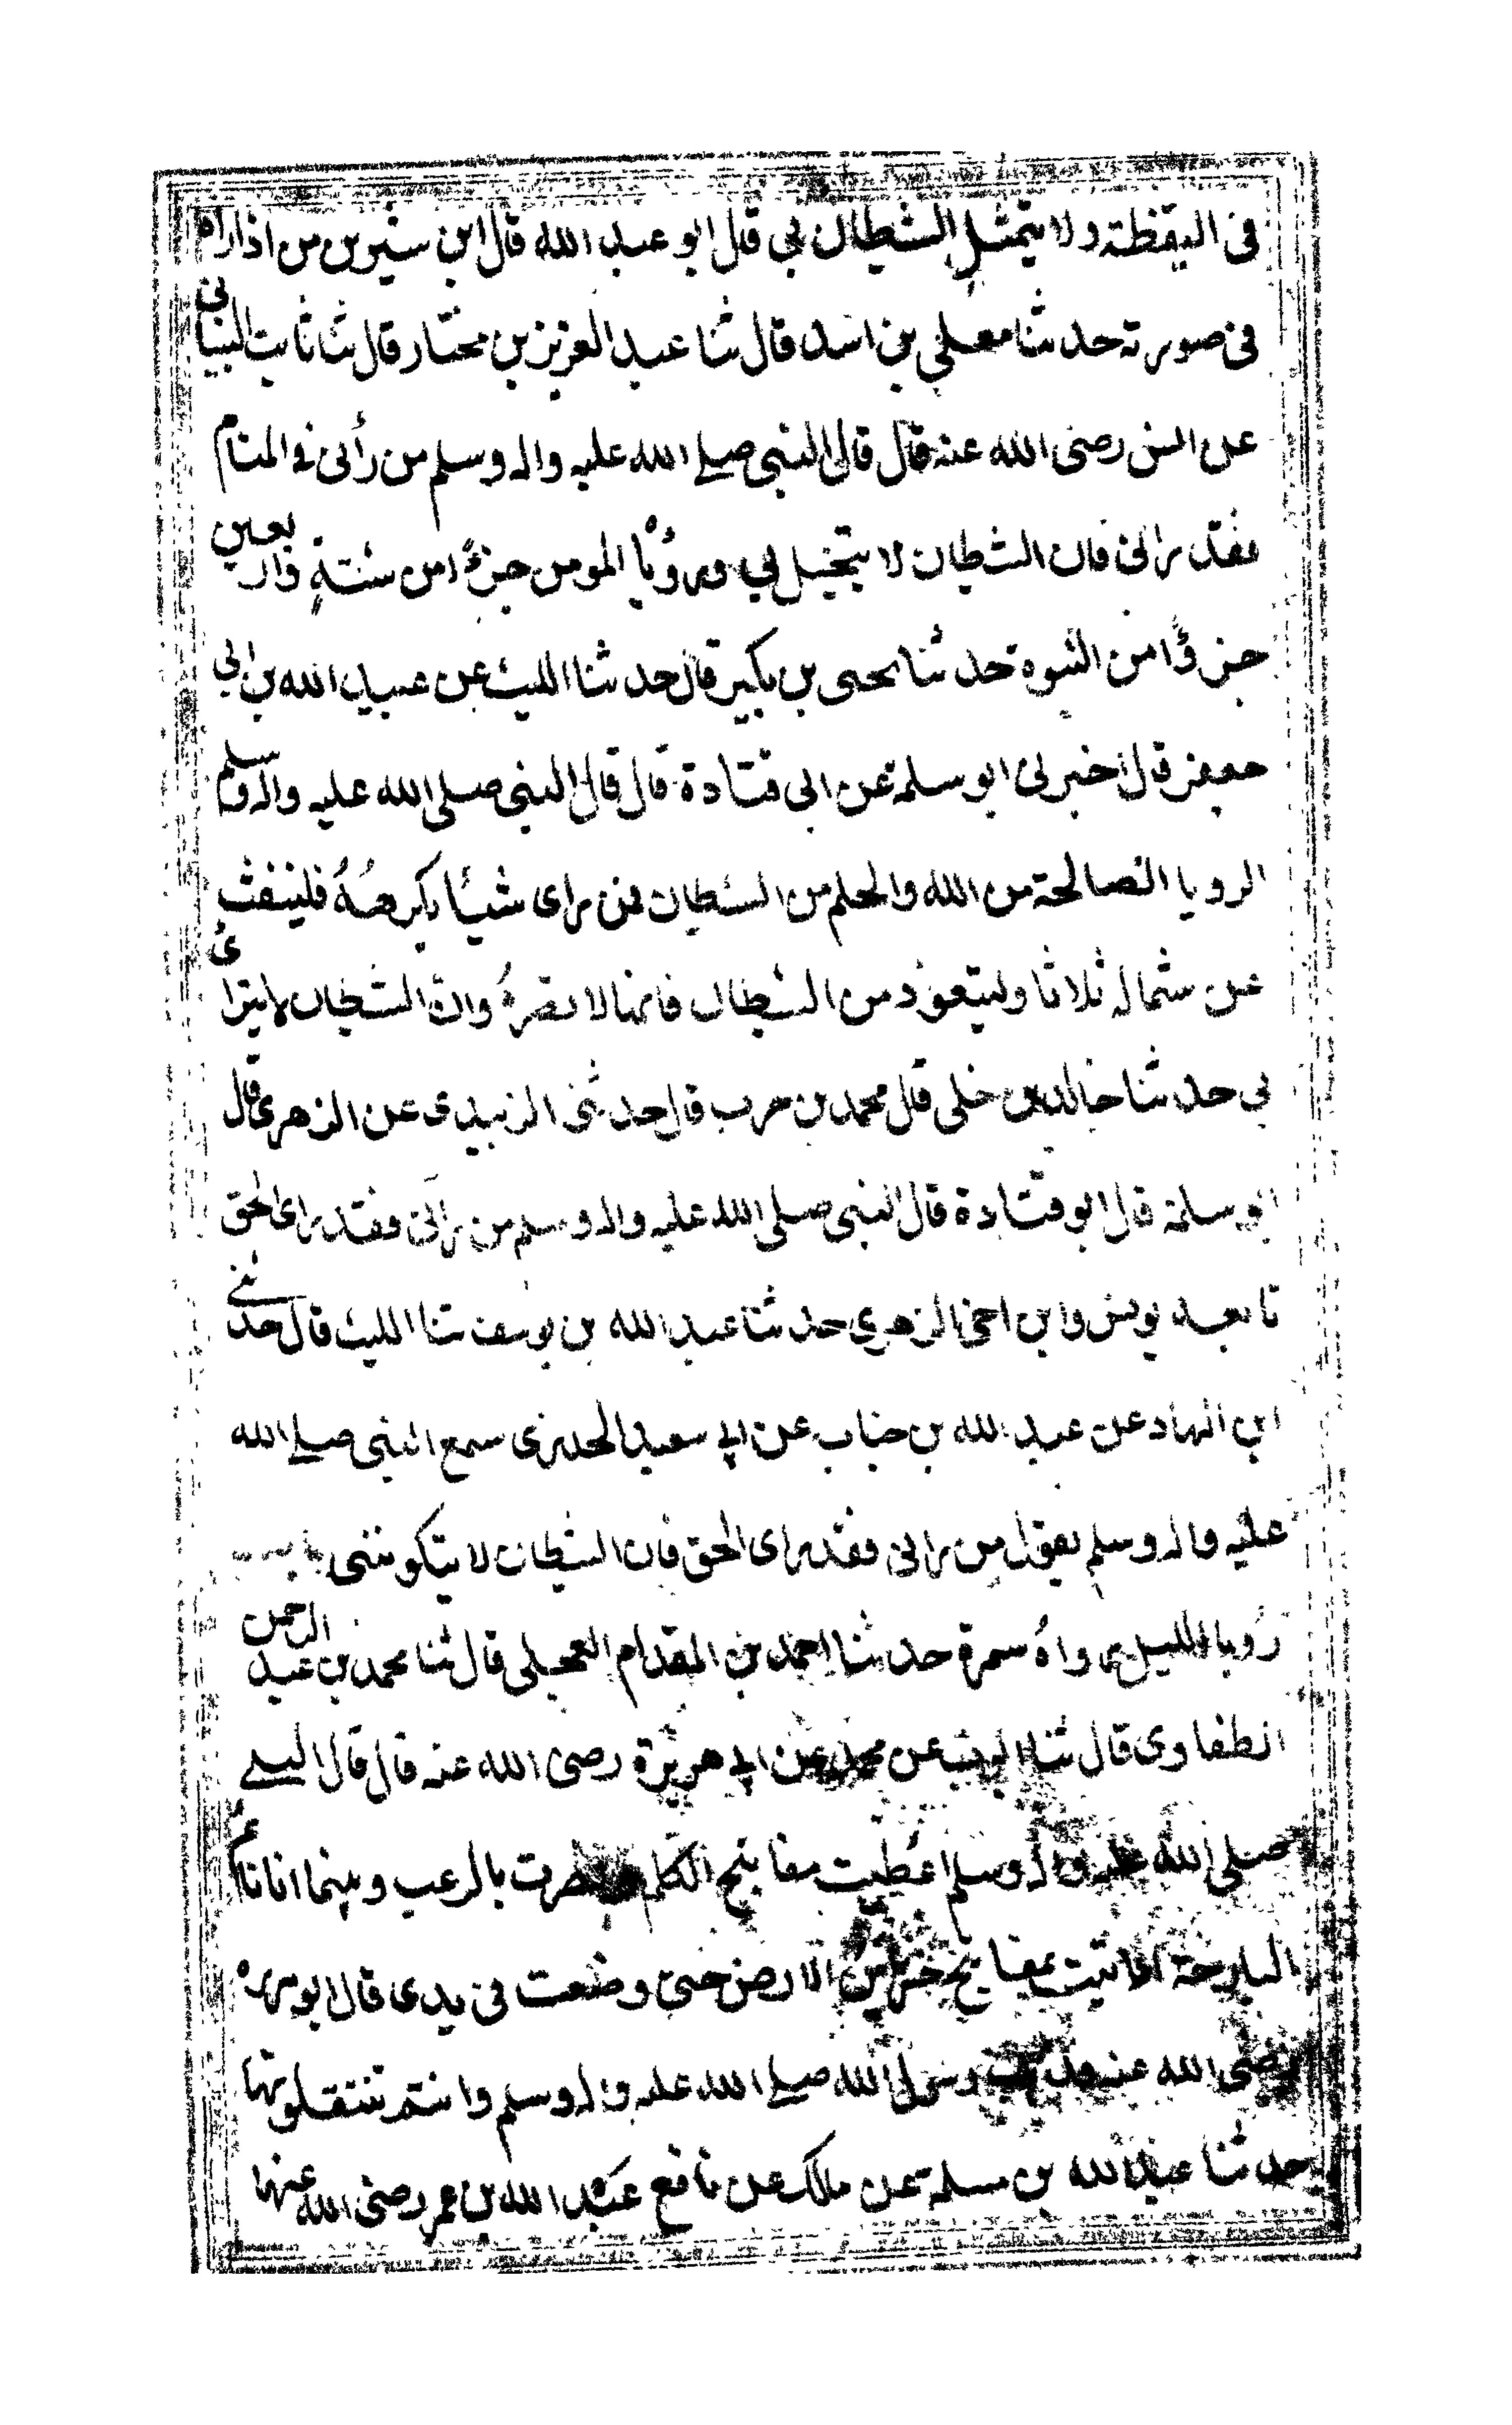 فى اليقظة ولا يتمثل الشيطان بي قال ابو عبد الله قال ابن سيرين من اذا راه
فى صورته حدثنا معلي بن اسد قال ثنا عبد العزيز بن مختار قال ثنا ثابت البناني
عن انس رضى الله عنه قال قال النبى صلے الله عليه واله وسلم من رأنى فے المنام
فقد رانى فان الشيطان لا يتخيل بي ورؤيا المومن جزءً امن ستةٍ واربعين
جزءًا من النبوة حدثنا يحيى بن بكير قال حدثنا الليث عن عبيد الله بن ابي
جعفر قال اخبرنى ابو سلمة عن ابى قتادة قال قال النبى صلى الله عليه واله وسلم
الرويا الصالحة من الله والحلم من الشيطان فمن راى شيئا يكرههُ فلينفث
عن شماله ثلاثا وليتعوذ من الشيطان فانها لا تضرهُ وان الشيطان لا يتراءى
بي حدثنا خالد بن خلى قال محمد بن حرب قال حدثنى الزبيدى عن الزهرى قال
ابو سلمة قال ابو قتادة قال النبى صلى الله عليه واله وسلم من رآنى فقد راى الحق
تابعه يونس وابن اخى الزهري حدثنا عبد الله بن يوسف ثنا الليث قال حدثنے
ابن الهاد عن عبد الله بن خباب عن ابے سعيد الخدرى سمع النبى صلے الله
عليه واله وسلم يقول من رانى فقد راى الحق فان الشيطان لا يتكوننى
رُويا الليل رواهُ سمرة حدثنا احمد بن المقدام العجلى قال ثنا محمد بن عبد الرحمن
الطفاوى قال ثنا ايوب عن محمد عن ابے هريرة رضى الله عنه قال قال النبے
صلى الله عليه واله وسلم اعطيت مفاتيح الكلم ونصرت بالرعب وبينما انا نائم
البارحة اذ اتيت بمفاتيح خزائن الارض حتى وضعت فى يدى قال ابو هريرة
رضى الله عنه فذهب رسول الله صلے الله عليه واله وسلم وانتم تنتقلونها
حدثنا عبد الله بن مسلمة عن مالك عن نافع عن عبد الله بن عمر رضى الله عنهما